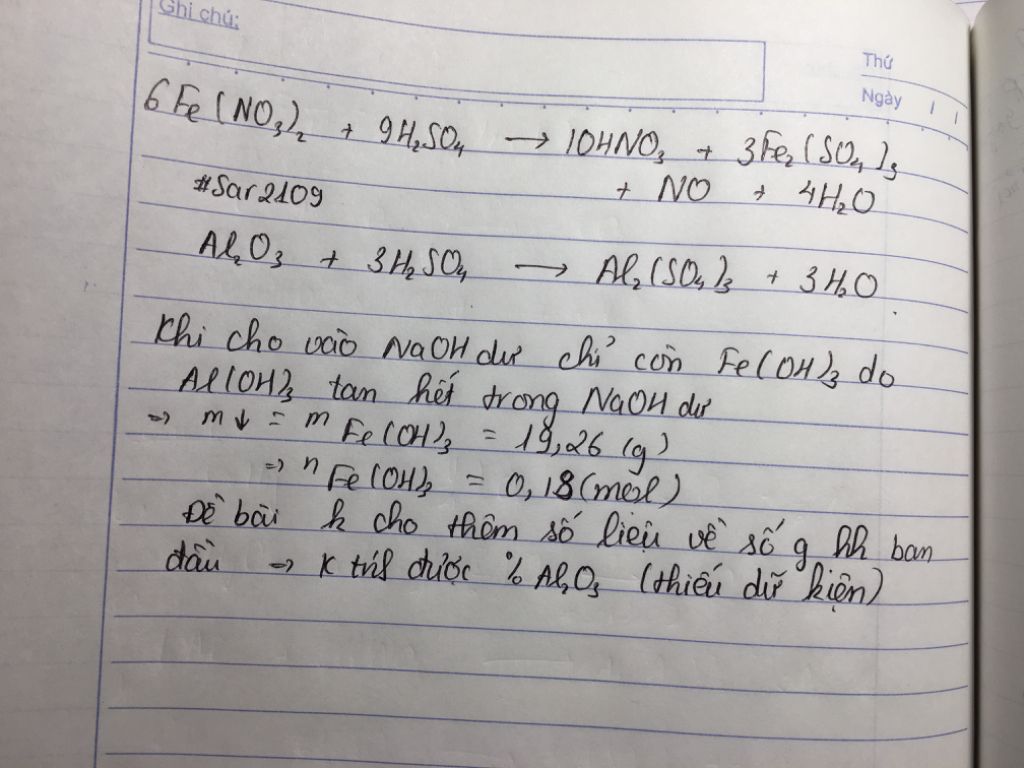 Ghi chú:
Thứ
Ngày / /
6Fe(NO₃)₂ + 9H₂SO₄ → 10HNO₃ + 3Fe₂(SO₄)₃
#Sar2109 + NO + 4H₂O
Al₂O₃ + 3H₂SO₄ → Al₂(SO₄)₃ + 3H₂O
Khi cho vào NaOH dư chỉ còn Fe(OH)₃ do
Al(OH)₃ tan hết trong NaOH dư
=> m↓ = m Fe(OH)₃ = 19,26 (g)
=> n Fe(OH)₃ = 0,18 (mol)
Đề bài k cho thêm số liệu về số g hh ban
đầu => k tính được % Al₂O₃ (thiếu dữ kiện)